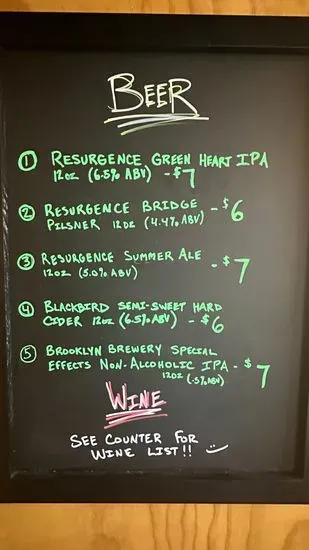 BEER
1 RESURGENCE GREEN HEART IPA
12OZ (6.5% ABV) - $7
2 RESURGENCE BRIDGE - $6
PILSNER 12OZ (4.4% ABV)
3 RESURGENCE SUMMER ALE - $7
12OZ (5.0% ABV)
4 BLACKBIRD SEMI-SWEET HARD
CIDER 12OZ (6.5% ABV) - $6
5 BROOKLYN BREWERY SPECIAL
EFFECTS NON-ALCOHOLIC IPA - $7
12OZ (.5% ABV)
WINE
SEE COUNTER FOR
WINE LIST!!